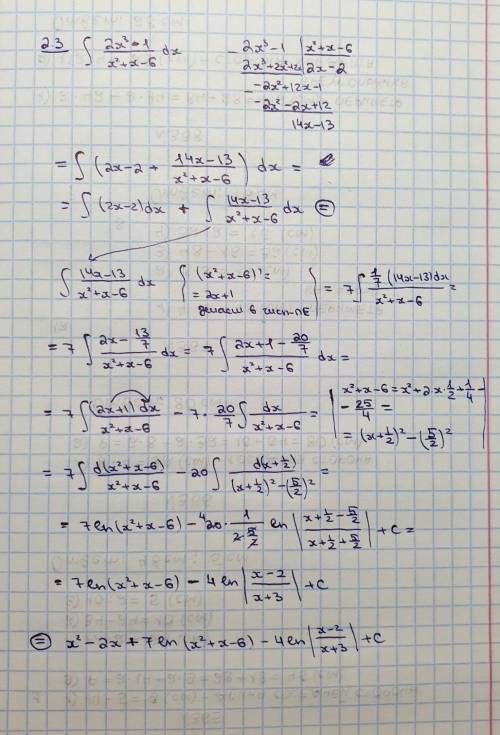 23 ∫ (2x³-1)/(x²+x-6) dx
-2x³-1 | x²+x-6
2x³+2x²+2x | 2x-2
-2x²+12x-1
-2x²-2x+12
14x-13
= ∫ (2x-2 + (14x-13)/(x²+x-6)) dx =
= ∫ (2x-2)dx + ∫ (14x-13)/(x²+x-6) dx ⊜
∫ (14x-13)/(x²+x-6) dx { (x²+x-6)'= = 2x+1 делаем в числ-ле } = 7∫ (1/7 (14x-13)dx)/(x²+x-6) =
= 7∫ (2x - 13/7)/(x²+x-6) dx = 7∫ (2x+1 - 20/7)/(x²+x-6) dx =
= 7∫ ((2x+1)dx)/(x²+x-6) - 7·20/7 ∫ dx/(x²+x-6) = | x²+x-6 = x²+2x·1/2+1/4 -
- 25/4 =
= (x+1/2)² - (5/2)² |
= 7∫ d(x²+x-6)/(x²+x-6) - 20∫ d(x+1/2)/((x+1/2)²-(5/2)²) =
= 7ln(x²+x-6) - 20·1/(2·5/2) ln|(x+1/2-5/2)/(x+1/2+5/2)| + C =
= 7ln(x²+x-6) - 4ln|(x-2)/(x+3)| + C
⊜ x²-2x+7ln(x²+x-6) - 4ln|(x-2)/(x+3)| + C